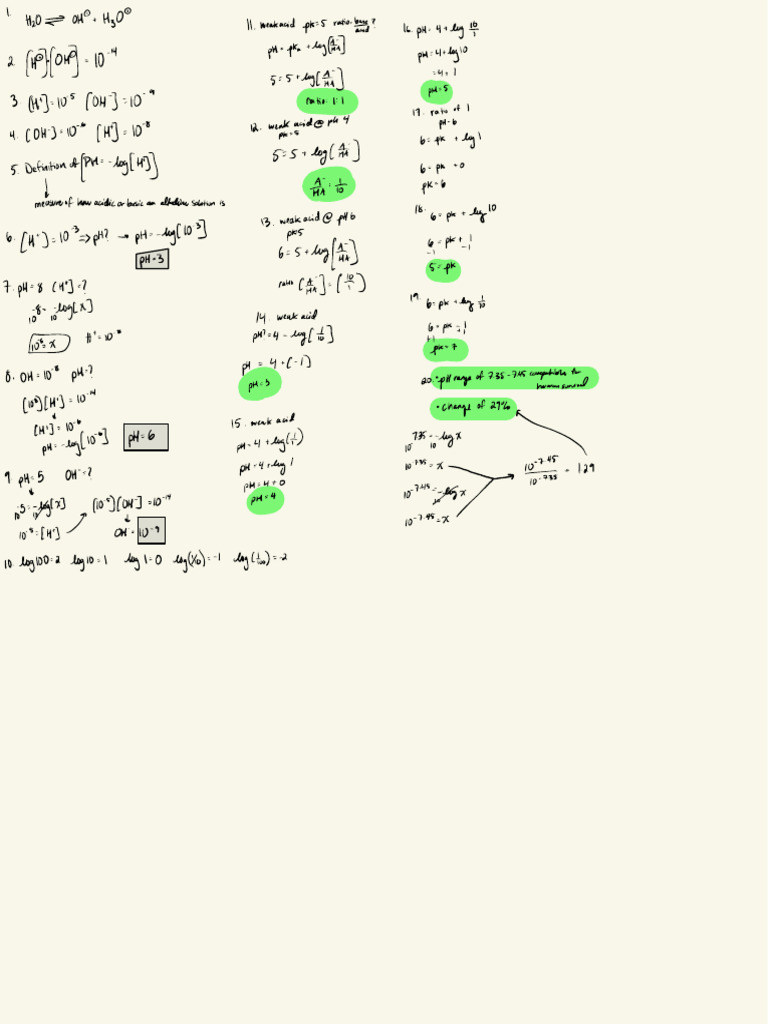 1.
H₂O ⇌ OH⊖ + H₃O⊕
2. [H⊕]·[OH⊖] = 10⁻⁴
3. [H⁺] = 10⁻⁵ [OH⁻] = 10⁻⁹
4. [OH⁻] = 10⁻⁶ [H⁺] = 10⁻⁸
5. Definition of [PH = -log[H⁺]]
measure of how acidic or basic an alkaline solution is
6. [H⁺] = 10⁻³ ⇒ pH? → pH = -log[10⁻³]
pH = 3
7. pH = 8 [H⁺] = ?
10⁻8 = 10 -log[x]
10⁻⁸ = x H⁺ = 10⁻⁸
8. OH = 10⁻⁸ pH = ?
[10⁸][H⁺] = 10⁻¹⁴
[H⁺] = 10⁻⁶
pH = -log[10⁻⁶] pH = 6
9. pH = 5 OH⁻ = ?
10⁻5 = -log[x] 10 [10⁻⁵][OH⁻] = 10⁻¹⁴
10⁻⁵ = [H⁺] OH = 10⁻⁹
10. log100 = 2 log10 = 1 log1 = 0 log(1/10) = -1 log(1/100) = -2
11. weak acid pk = 5 ratio base/acid ?
pH = pKa + log[A⁻/HA]
5 = 5 + log[A⁻/HA]
ratio: 1:1
12. weak acid @ pH 4
pk = 5
5 = 5 + log[A⁻/HA]
A⁻/HA : 1/10
13. weak acid @ pH 6
pk 5
6 = 5 + log[A⁻/HA]
ratio [A⁻/HA] = (10/1)
14. weak acid
pH? = 4 - log[1/10]
pH = 4 + (-1)
pH = 3
15. weak acid
pH = 4 + log(1/1)
pH = 4 + log 1
pH = 4 + 0
pH = 4
16. pH = 4 + log 10/1
pH = 4 + log 10
= 4 + 1
pH = 5
17. ratio of 1
pH = 6
6 = pk + log 1
6 = pk + 0
pk = 6
18.
6 = pk + log 10
6 = pk + 1
-1 -1
5 = pk
19.
6 = pk + log 1/10
6 = pk - 1
+1 +1
pk = 7
20. • pH range of 7.35 - 7.45 compatible to
human survival
• change of 29%
10⁻ 7.35 = -log x 10
10⁻⁷·³⁵ = x
10⁻⁷·⁴⁵ = -log x
10⁻⁷·⁴⁵ = x
10⁻⁷·⁴⁵ / 10⁻⁷·³⁵ = 129